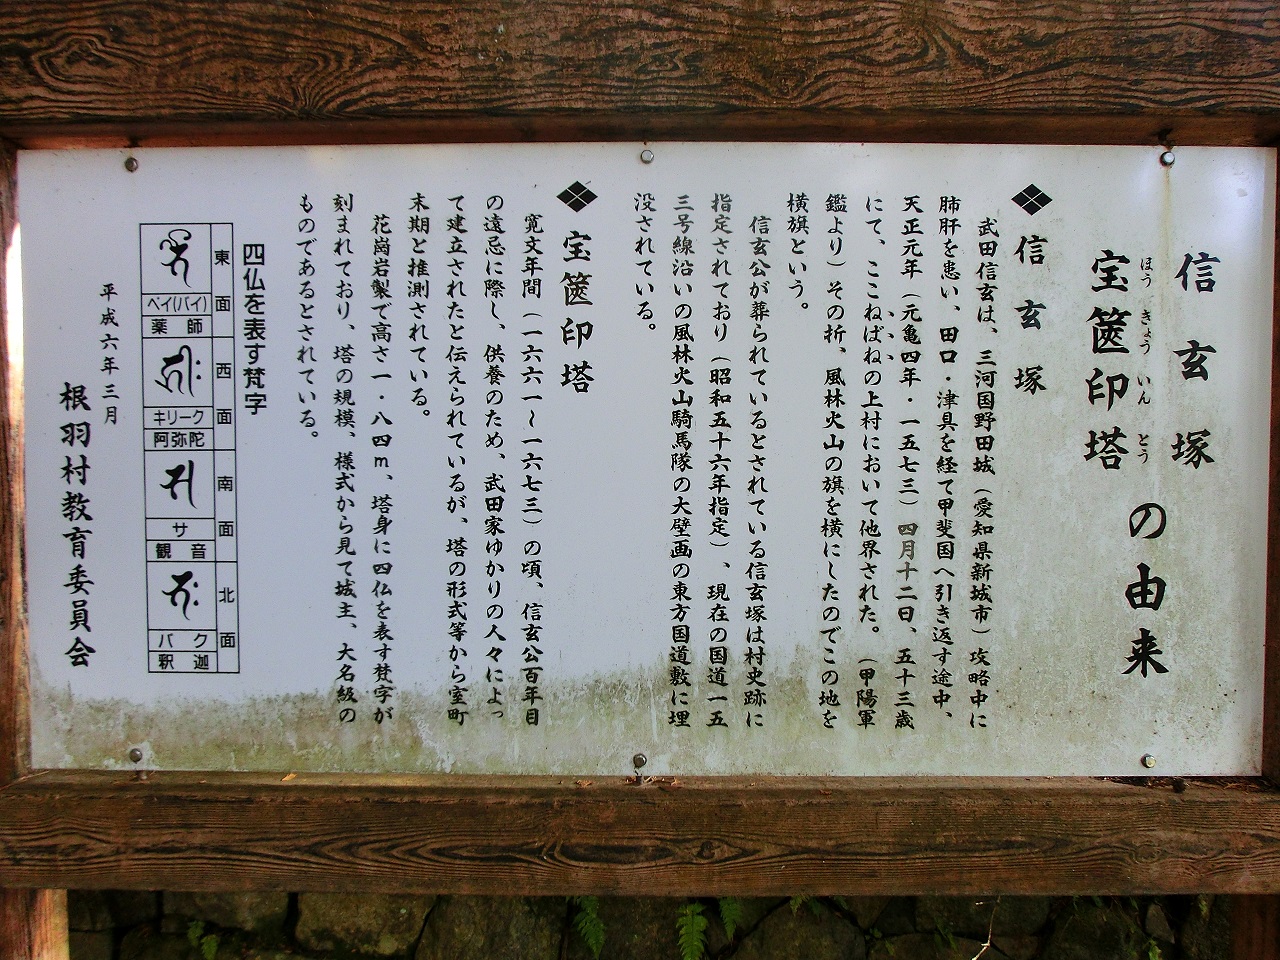 信玄塚
宝篋印塔
ほうきょういんとう
の由来
信玄塚
武田信玄は、三河国野田城(愛知県新城市)攻略中に
肺肝を患い、田口・津具を経て甲斐国へ引き返す途中、
天正元年(元亀四年・一五七三)四月十二日、五十三歳
にて、ここねばねの上村において他界された。(甲陽軍
鑑より)その折、風林火山の旗を横にしたのでこの地を
横旗という。
信玄公が葬られているとされている信玄塚は村史跡に
指定されており(昭和五十六年指定)、現在の国道一五
三号線沿いの風林火山騎馬隊の大壁画の東方国道敷に埋
没されている。
宝篋印塔
寛文年間(一六六一〜一六七三)の頃、信玄公百年目
の遠忌に際し、供養のため、武田家ゆかりの人々によっ
て建立されたと伝えられているが、塔の形式等から室町
末期と推測されている。
花崗岩製で高さ一・八四m、塔身に四仏を表す梵字が
刻まれており、塔の規模、様式から見て城主、大名級の
ものであるとされている。
四仏を表す梵字
東面
ベイ(バイ)
薬師
西面
キリーク
阿弥陀
南面
サ
観音
北面
バク
釈迦
平成六年三月
根羽村教育委員会